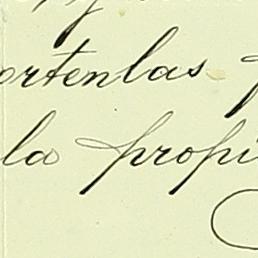 ortenlas
la propi